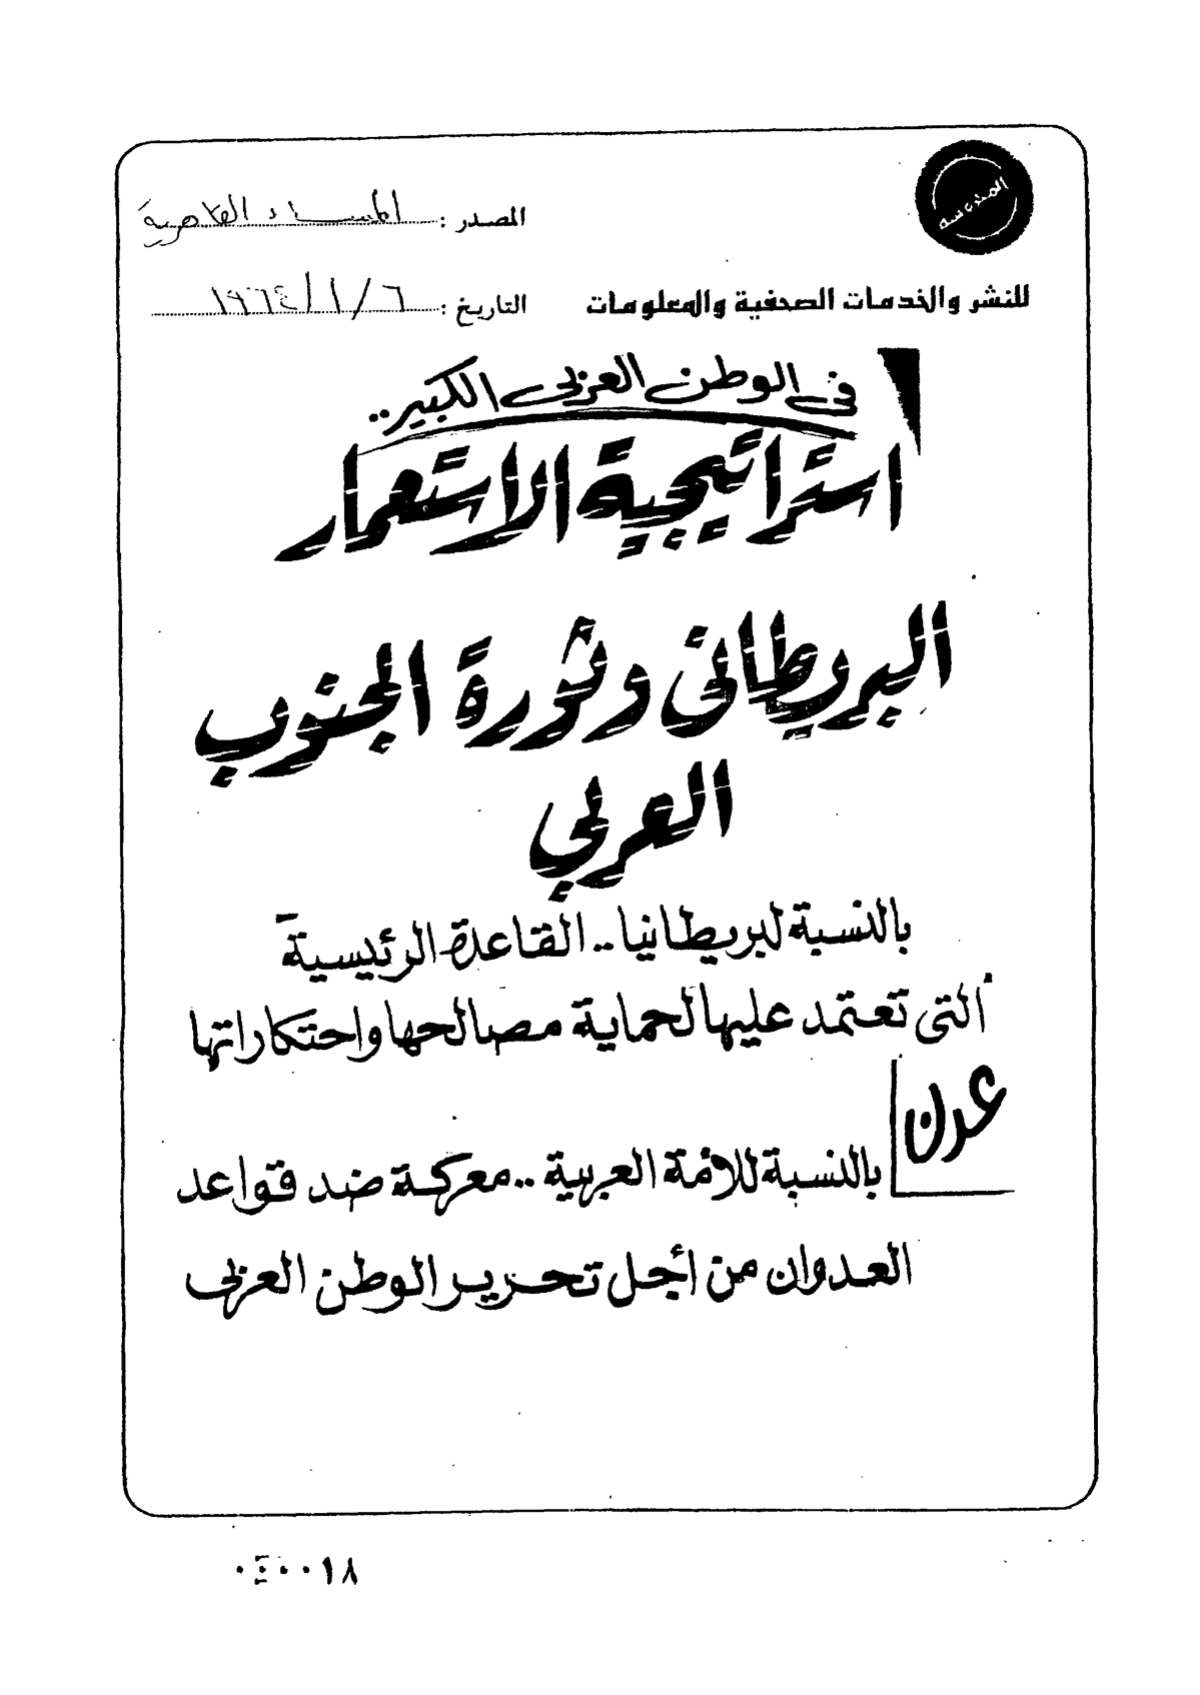 المصدر : المساء القاهرية
للنشر والخدمات الصحفية والمعلومات
التاريخ : ٦ / ١ / ١٩٦٤
في الوطن العربي الكبير..
استراتيجية الاستعمار
البريطاني وثورة الجنوب
العربي
بالنسبة لبريطانيا .. القاعدة الرئيسية
التى تعتمد عليها لحماية مصالحها واحتكاراتها
عدن
بالنسبة للأمة العربية .. معركة ضد قواعد
العدوان من أجل تحرير الوطن العربى